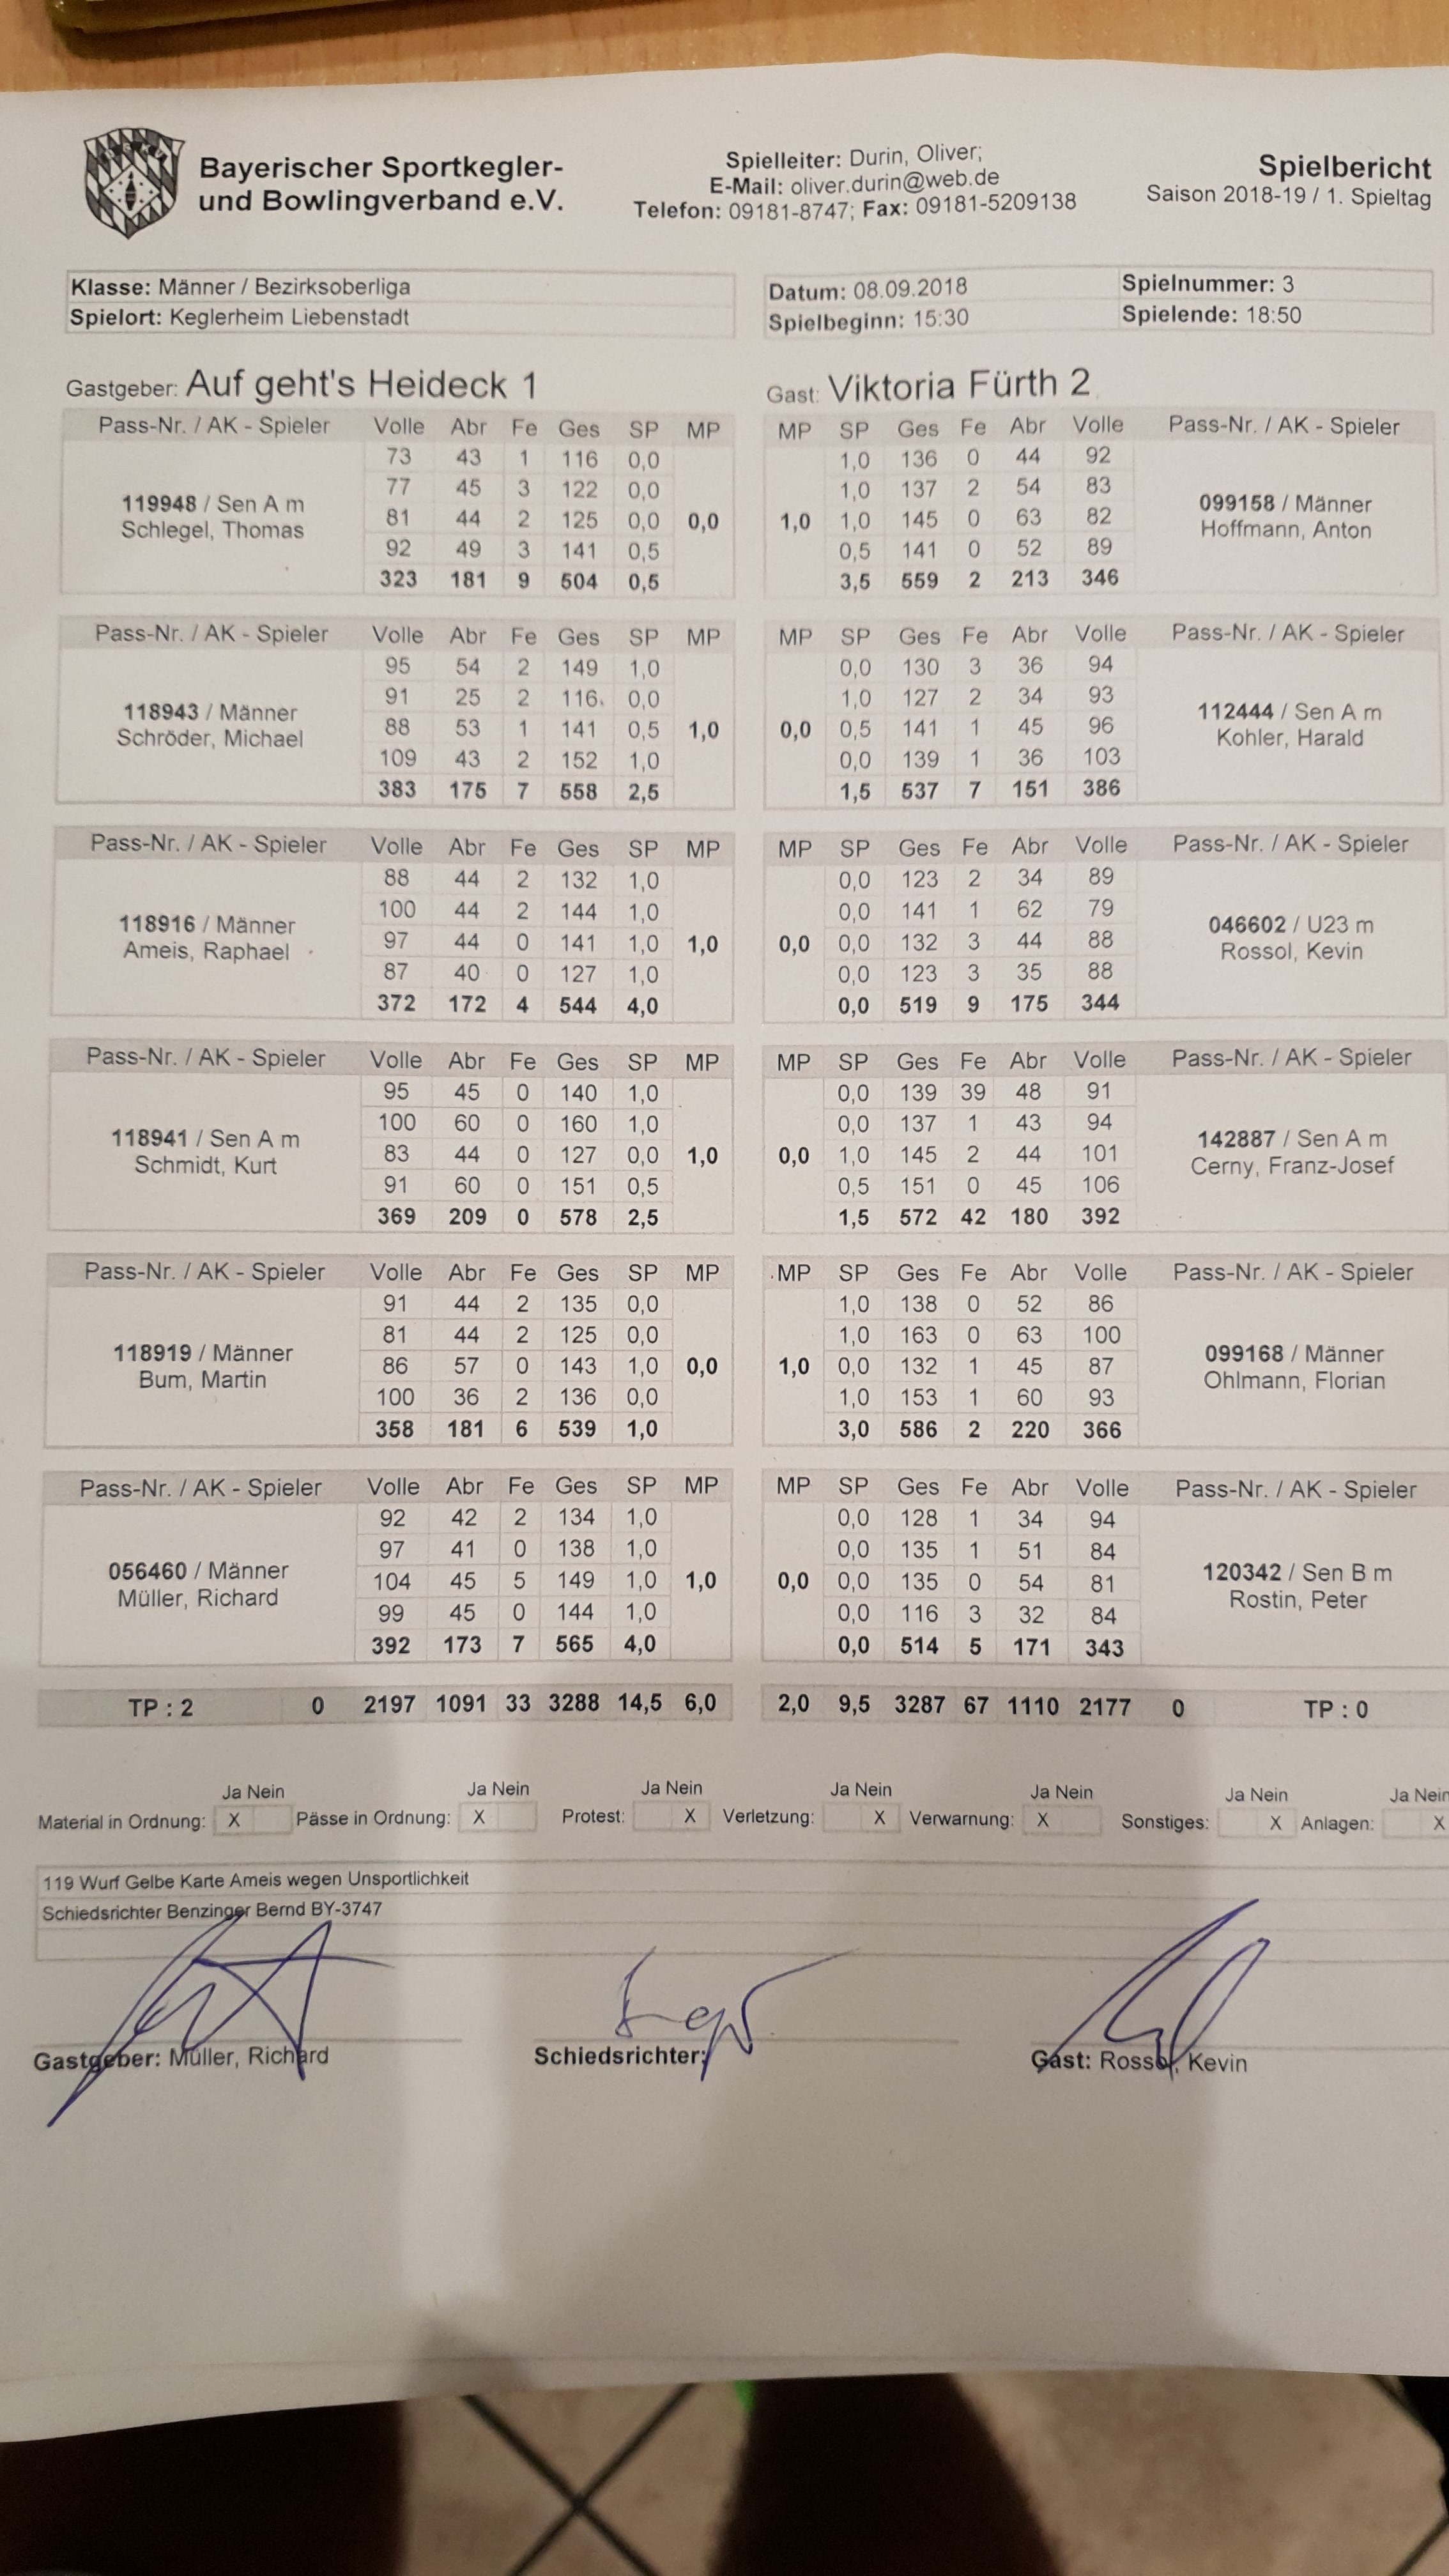 Bayerischer Sportkegler-
und Bowlingverband e.V.
Spielleiter: Durin, Oliver;
E-Mail: oliver.durin@web.de
Telefon: 09181-8747; Fax: 09181-5209138
Spielbericht
Saison 2018-19 / 1. Spieltag
Klasse: Männer / Bezirksoberliga
Spielort: Keglerheim Liebenstadt
Datum: 08.09.2018 Spielnummer: 3
Spielbeginn: 15:30 Spielende: 18:50
Gastgeber: Auf geht's Heideck 1 Gast: Viktoria Fürth 2
Pass-Nr. / AK - Spieler Volle Abr Fe Ges SP MP MP SP Ges Fe Abr Volle Pass-Nr. / AK - Spieler
73 43 1 116 0,0 1,0 136 0 44 92
77 45 3 122 0,0 1,0 137 2 54 83
119948 / Sen A m 099158 / Männer
81 44 2 125 0,0 0,0 1,0 1,0 145 0 63 82
Schlegel, Thomas Hoffmann, Anton
92 49 3 141 0,5 0,5 141 0 52 89
323 181 9 504 0,5 3,5 559 2 213 346
Pass-Nr. / AK - Spieler Volle Abr Fe Ges SP MP MP SP Ges Fe Abr Volle Pass-Nr. / AK - Spieler
95 54 2 149 1,0 0,0 130 3 36 94
91 25 2 116 0,0 1,0 127 2 34 93
118943 / Männer 112444 / Sen A m
88 53 1 141 0,5 1,0 0,0 0,5 141 1 45 96
Schröder, Michael Kohler, Harald
109 43 2 152 1,0 0,0 139 1 36 103
383 175 7 558 2,5 1,5 537 7 151 386
Pass-Nr. / AK - Spieler Volle Abr Fe Ges SP MP MP SP Ges Fe Abr Volle Pass-Nr. / AK - Spieler
88 44 2 132 1,0 0,0 123 2 34 89
100 44 2 144 1,0 0,0 141 1 62 79
118916 / Männer 046602 / U23 m
97 44 0 141 1,0 1,0 0,0 0,0 132 3 44 88
Ameis, Raphael Rossol, Kevin
87 40 0 127 1,0 0,0 123 3 35 88
372 172 4 544 4,0 0,0 519 9 175 344
Pass-Nr. / AK - Spieler Volle Abr Fe Ges SP MP MP SP Ges Fe Abr Volle Pass-Nr. / AK - Spieler
95 45 0 140 1,0 0,0 139 39 48 91
100 60 0 160 1,0 0,0 137 1 43 94
118941 / Sen A m 142887 / Sen A m
83 44 0 127 0,0 1,0 0,0 1,0 145 2 44 101
Schmidt, Kurt Cerny, Franz-Josef
91 60 0 151 0,5 0,5 151 0 45 106
369 209 0 578 2,5 1,5 572 42 180 392
Pass-Nr. / AK - Spieler Volle Abr Fe Ges SP MP MP SP Ges Fe Abr Volle Pass-Nr. / AK - Spieler
91 44 2 135 0,0 1,0 138 0 52 86
81 44 2 125 0,0 1,0 163 0 63 100
118919 / Männer 099168 / Männer
86 57 0 143 1,0 0,0 1,0 0,0 132 1 45 87
Bum, Martin Ohlmann, Florian
100 36 2 136 0,0 1,0 153 1 60 93
358 181 6 539 1,0 3,0 586 2 220 366
Pass-Nr. / AK - Spieler Volle Abr Fe Ges SP MP MP SP Ges Fe Abr Volle Pass-Nr. / AK - Spieler
92 42 2 134 1,0 0,0 128 1 34 94
97 41 0 138 1,0 0,0 135 1 51 84
056460 / Männer 120342 / Sen B m
104 45 5 149 1,0 1,0 0,0 0,0 135 0 54 81
Müller, Richard Rostin, Peter
99 45 0 144 1,0 0,0 116 3 32 84
392 173 7 565 4,0 0,0 514 5 171 343
TP : 2 0 2197 1091 33 3288 14,5 6,0 2,0 9,5 3287 67 1110 2177 0 TP : 0
Ja Nein Ja Nein Ja Nein Ja Nein Ja Nein Ja Nein Ja Nein
Material in Ordnung: X Pässe in Ordnung: X Protest: X Verletzung: X Verwarnung: X Sonstiges: X Anlagen: X
119 Wurf Gelbe Karte Ameis wegen Unsportlichkeit
Schiedsrichter Benzinger Bernd BY-3747
Gastgeber: Müller, Richard Schiedsrichter: Gast: Rossol, Kevin